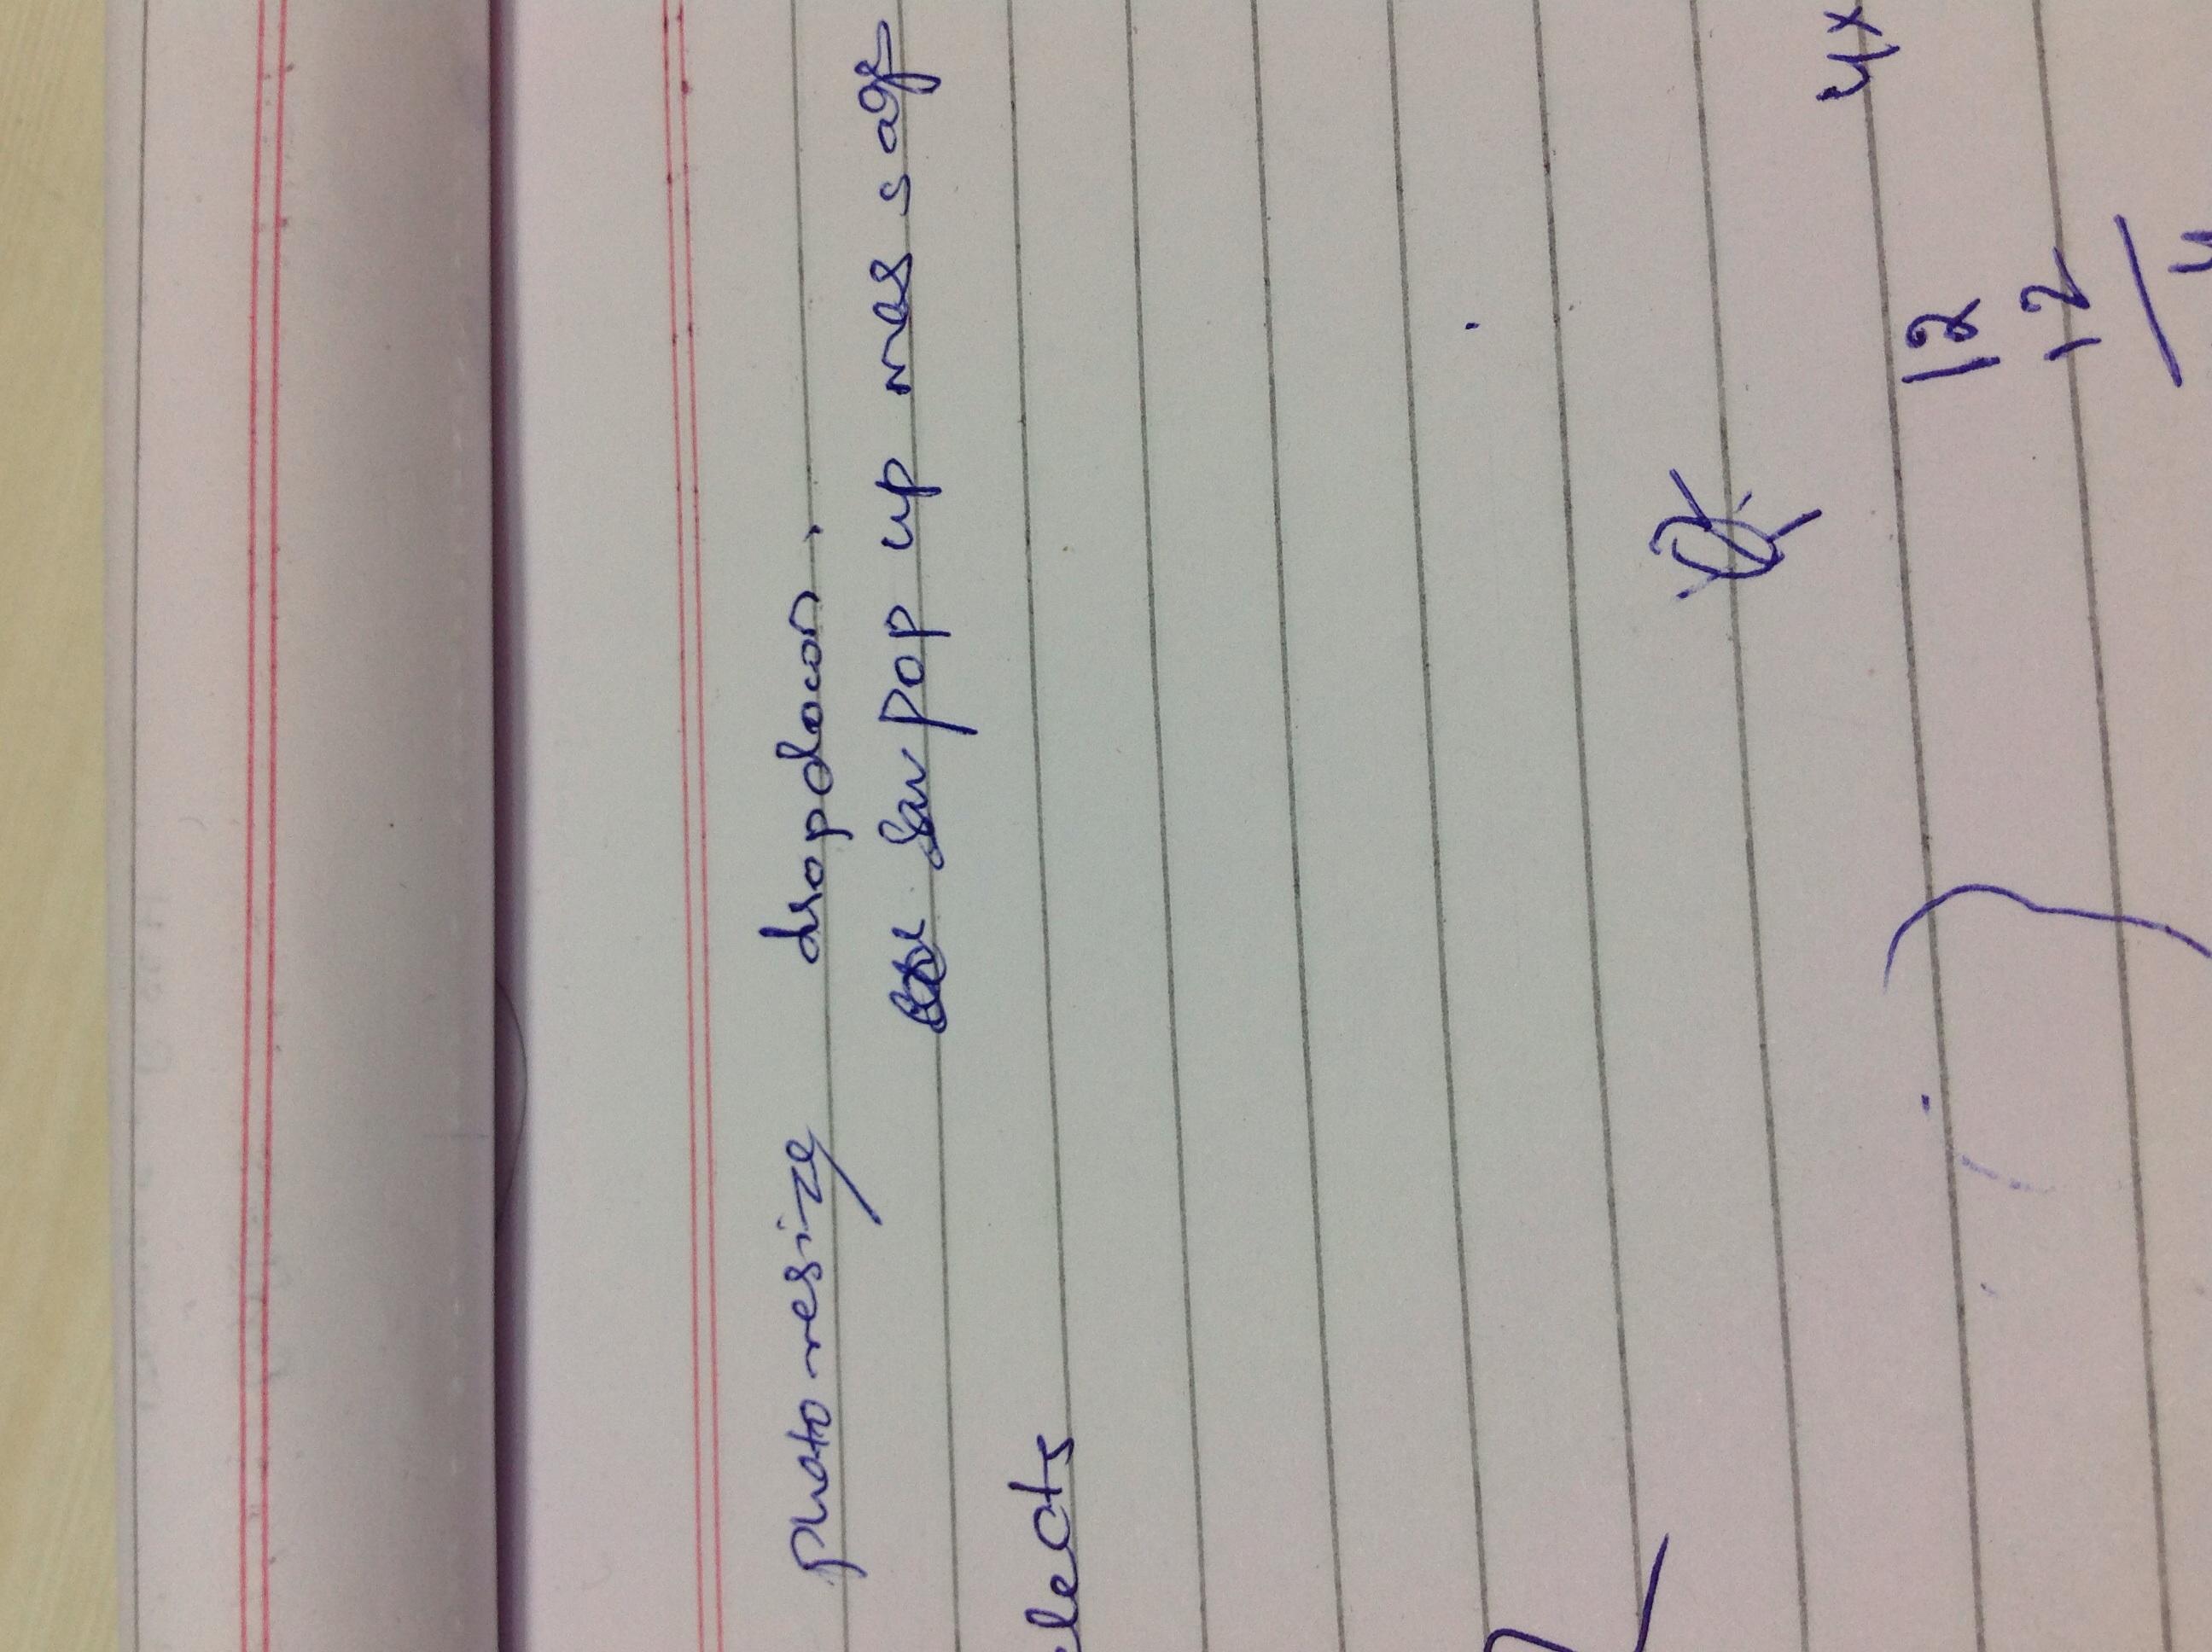 photo resize dropdown.
sav pop up message
elects
4x
12
12